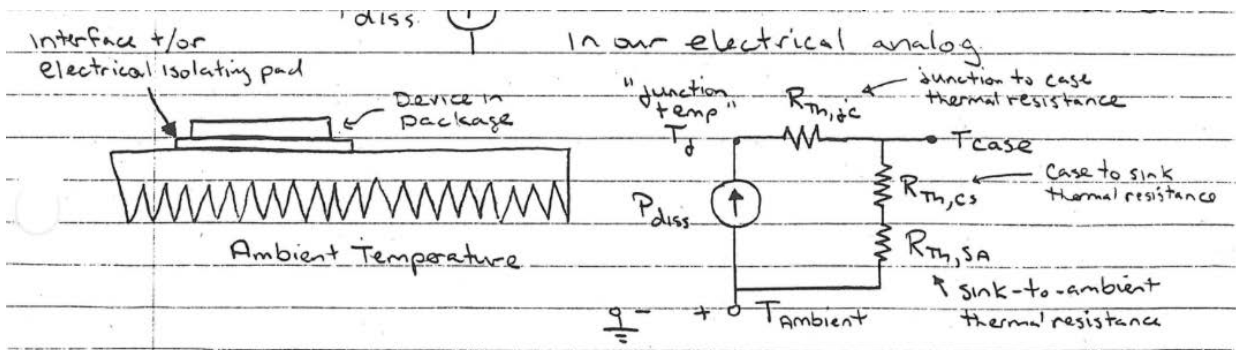 diss
Interface +/or
electrical isolating pad
Device in
package
Ambient Temperature
In our electrical analog
"junction
temp"
Tj
RTh,jc
junction to case
thermal resistance
Tcase
Pdiss
RTh,cs
Case to sink
thermal resistance
RTh,SA
sink-to-ambient
thermal resistance
- + TAmbient